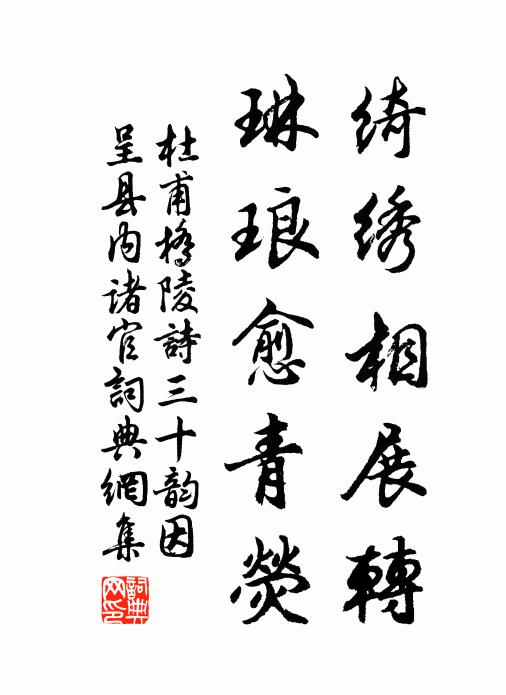 绮绣相展轉
琳琅愈青熒
杜甫橋陵詩三十韵因
呈县内诸官詞典網集
詞典网印